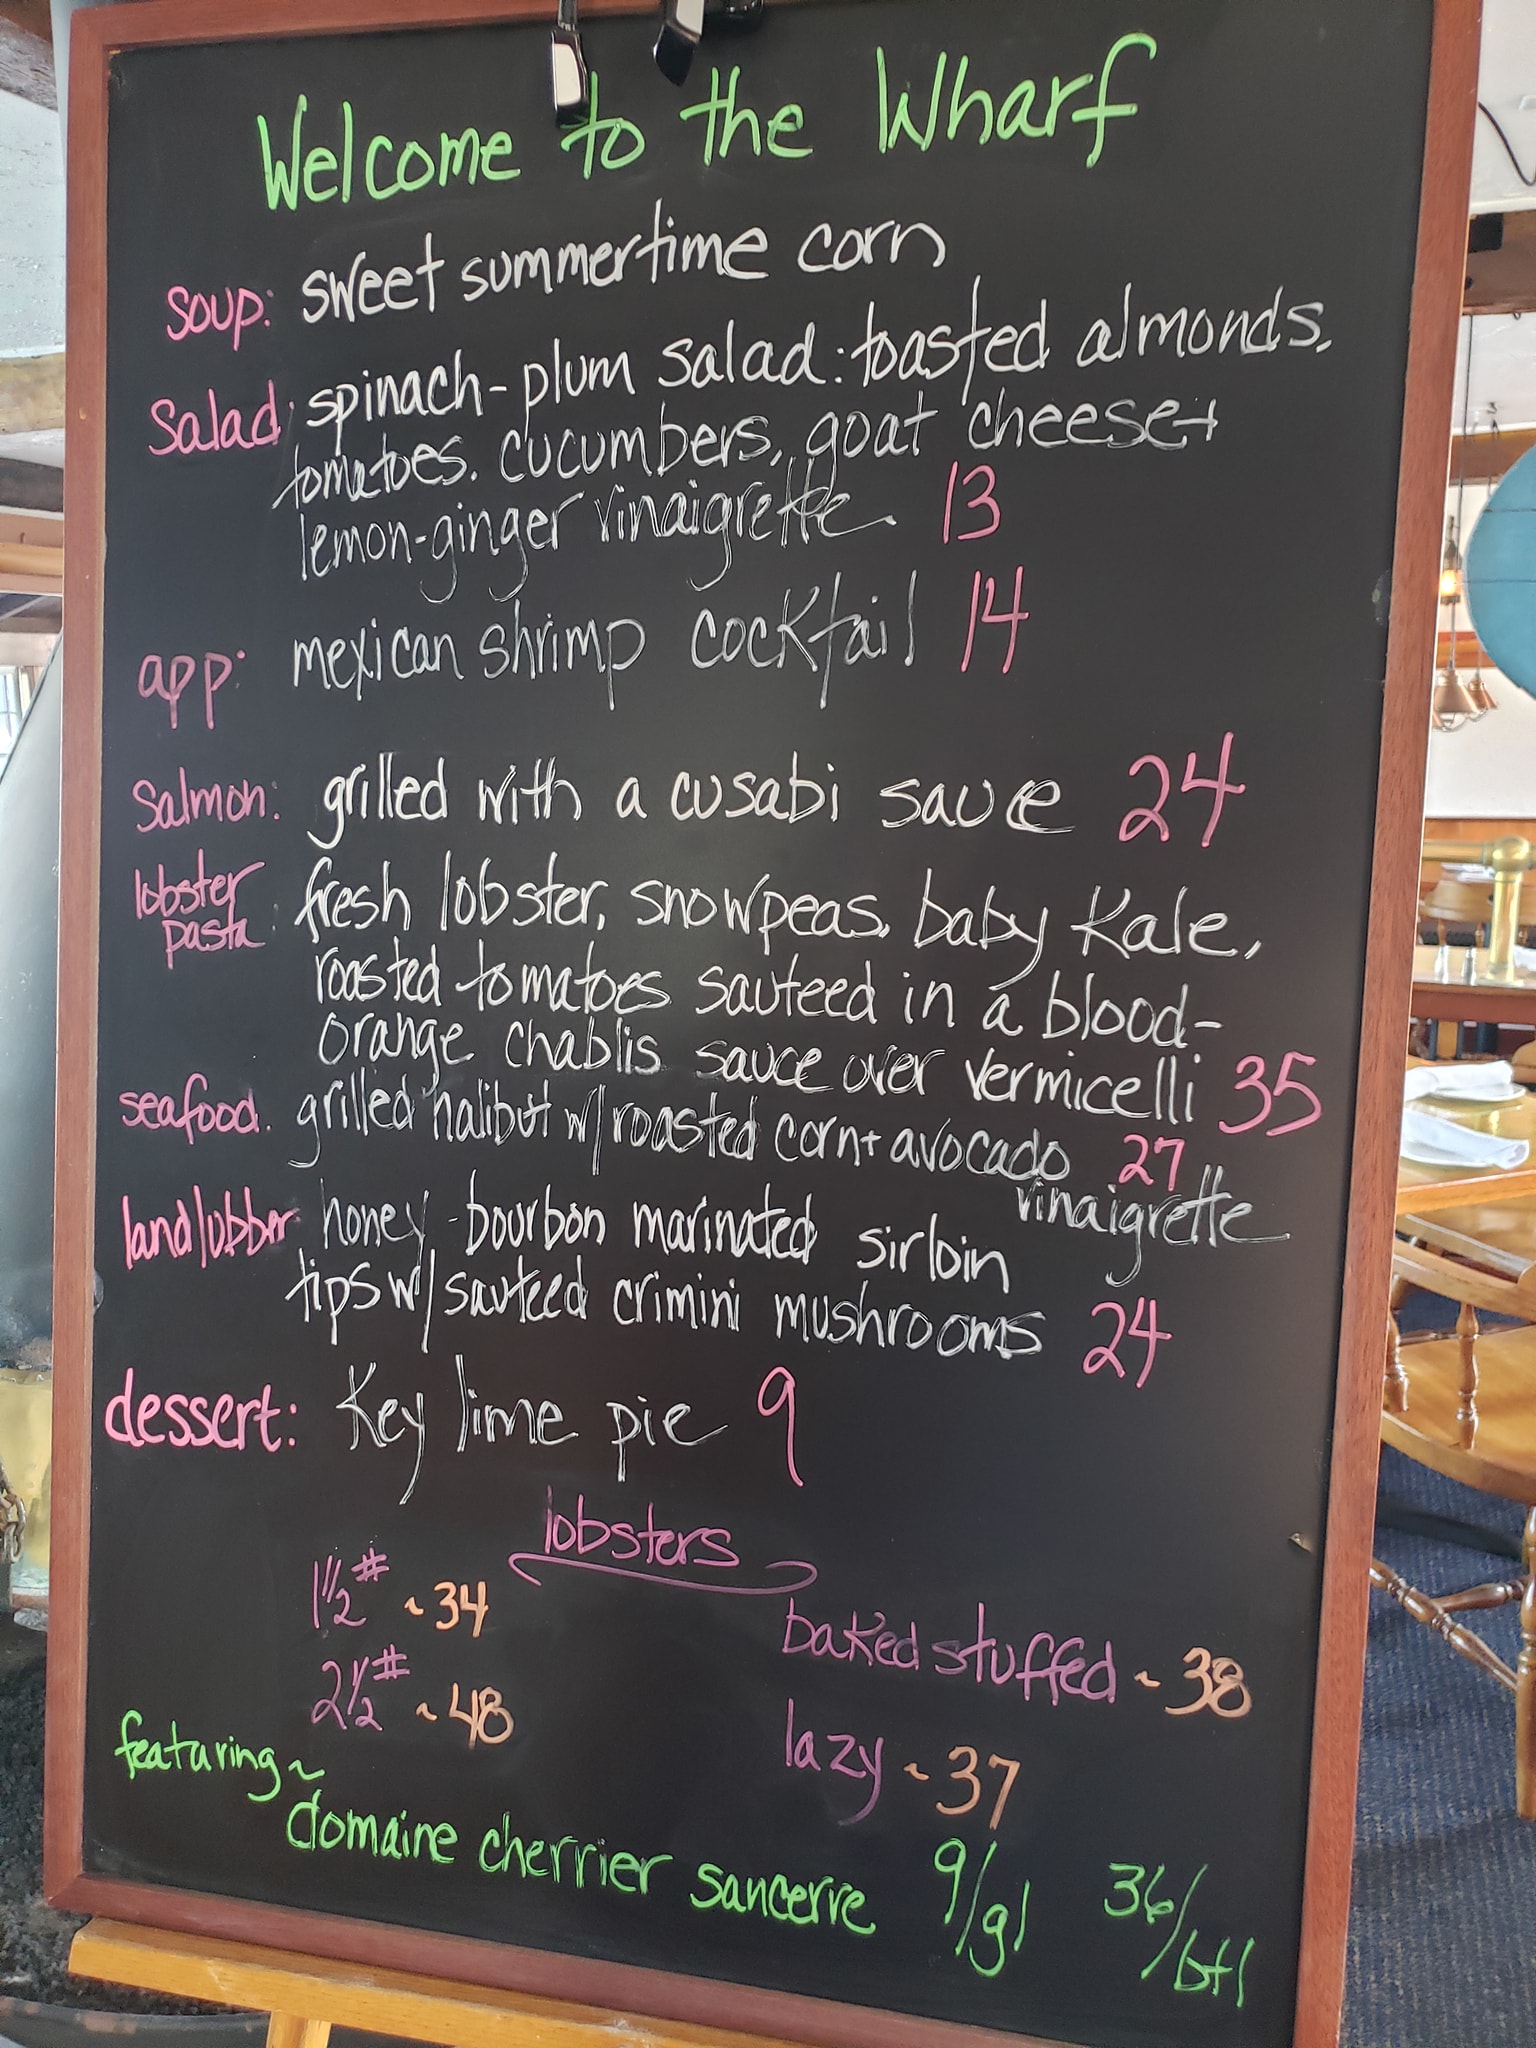 Welcome to the Wharf
soup: sweet summertime corn
Salad: spinach-plum salad: toasted almonds,
tomatoes, cucumbers, goat cheese +
lemon-ginger vinaigrette 13
app: mexican shrimp cocktail 14
Salmon: grilled with a cusabi sauce 24
lobster pasta: fresh lobster, snowpeas, baby kale,
roasted tomatoes sauteed in a blood-
orange chablis sauce over vermicelli 35
seafood: grilled halibut w/ roasted corn + avocado 27
vinaigrette
landlubber: honey-bourbon marinated sirloin
tips w/ sauteed crimini mushrooms 24
dessert: Key lime pie 9
lobsters
1 1/2 # ~ 34
baked stuffed ~ 38
2 1/2 # ~ 48
lazy ~ 37
featuring ~
domaine cherrier sancerre 9/gl 36/btl